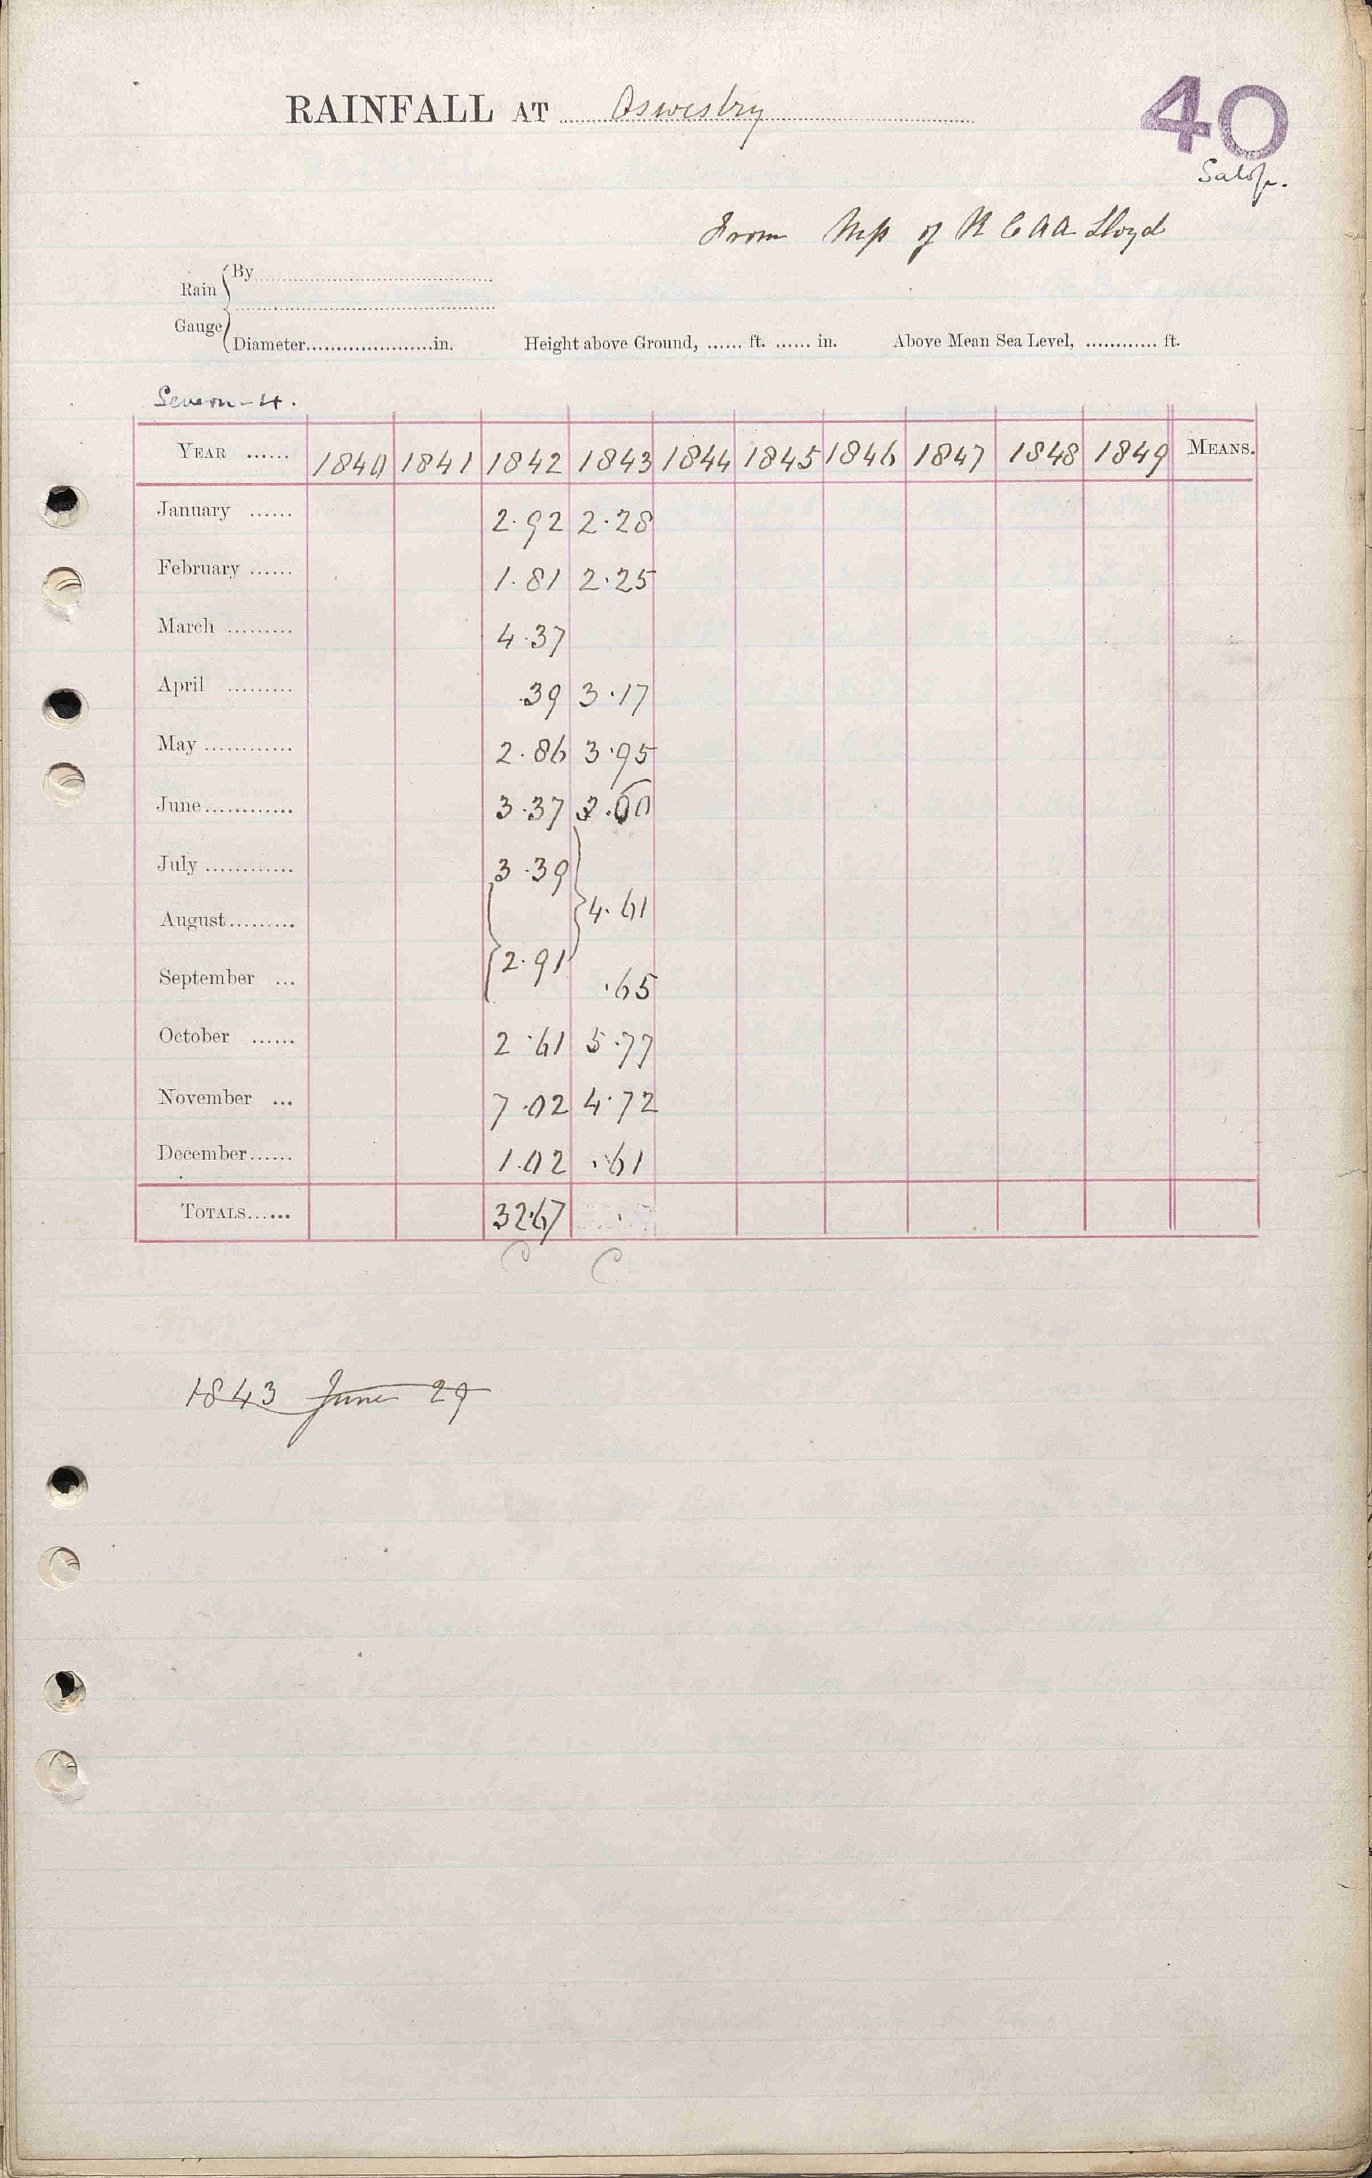 RAINFALL AT Oswestry
40
Salop.
From Mss of R C A A Lloyd
Rain Gauge
By
Diameter.....................in. Height above Ground, ...... ft. ...... in. Above Mean Sea Level, ............ ft.
Severn-4.
YEAR ...... 1840 1841 1842 1843 1844 1845 1846 1847 1848 1849 MEANS.
January ...... 2.92 2.28
February ...... 1.81 2.25
March ......... 4.37
April ......... .39 3.17
May ............ 2.86 3.95
June............ 3.37 .00
July ............ 3.39
August......... 4.61
September ... 2.91 .65
October ...... 2.61 5.77
November ... 7.02 4.72
December...... 1.02 .61
TOTALS...... 32.67
C C
1843 June 29